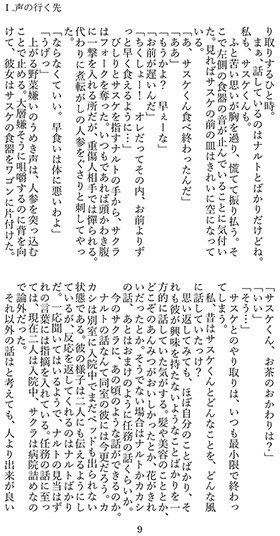 Ⅰ.声の行く先
り取りするひと時。
まぁ、話しているのはナルトとばかりだけどね。
私も、サスケくんも。
ふと苦い思いが胸を過り、慌てて振り払う。そ
こで左側の食器の音が止んでいることに気付い
た。見ればサスケの前の皿はきれいに空になって
いた。
「あ、サスケくん食べ終わったんだ」
「ああ」
「もうかよ？ 早ぇーな」
「お前が遅いんだ」
「ちくしょー！ オレだってその内、お前よりず
っと早く食えるように…」
びしりとサスケを指すナルトの手から、サクラ
はフォークを奪った。いつもであれば頭かわき腹
に一撃を入れる所だが、重傷人相手では憚られる。
代わりに煮転がしの人参をぐさりと刺してやっ
た。
「ならなくていい。早食いは体に悪いわよ」
「げぅっ」
上がる野菜嫌いのうめき声は、人参を突っ込む
ことで止める。大層嫌そうに咀嚼するのに背を向
けて、彼女はサスケの食器をワゴンに片付けた。
「サスケくん、お茶のおかわりは？」
「いい」
「そう…」
サスケとのやり取りは、いつも最小限で終わっ
てしまう。
私、昔はサスケくんとどんなことを、どんな風
に話していたっけ？
思い返してみても、ほぼ自分のことばかり、そ
れも彼が興味を持たないようなことばかりを一
方的に話していた気がする。髪や美容のこととか、
どこそのあんみつがおいしかったとか、花がきれ
いだったとか。そうでない場合はナルトかカカシ
の話。あとはおまけのように任務の話くらいか。
今のサクラに、あの頃のような話ができるのか。
ナルトの話なんて同室の彼には今更だろう。カ
カシは別室に入院中でまだベッドも出られない
状態である。彼の様子は二人にも伝えるようにし
ているが、反応を返してくれるのはナルトばかり
だ。一応聞いてはいるようで、ナルトの見当はずれ
の言葉には指摘を入れている。任務の話に至っ
ては、現在二人は入院中、サクラは病院詰めなの
で論外だった。
それ以外の話はと考えても、人より出来が良い
9